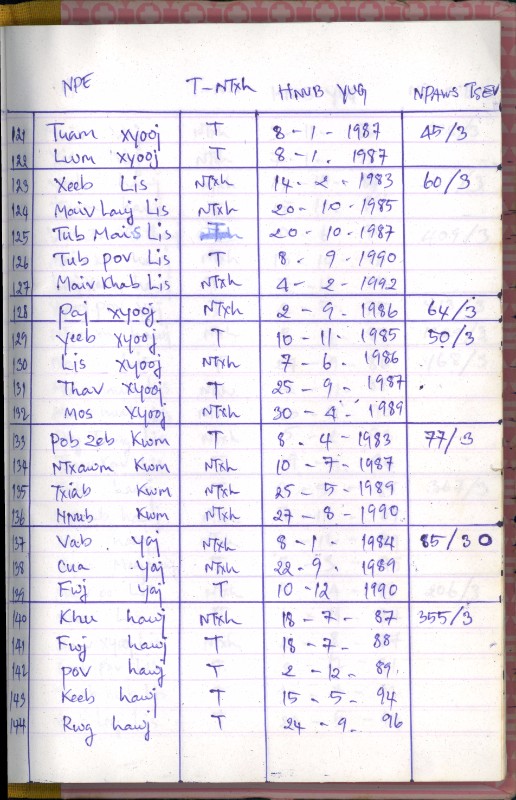 NPE T-NTxh HNUB YUG NPAWS TSEV
121 Tuam xyooj T 8-1-1987 45/3
122 Lwm xyooj T 8-1-1987
123 Xeeb Lis NTxh 14-2-1983 60/3
124 Maiv Lauj Lis NTxh 20-10-1985
125 Tub Mais Lis 20-10-1987
126 Tub pov Lis T 8-9-1990
127 Maiv Khab Lis NTxh 4-2-1992
128 Paj xyooj NTxh 2-9-1986 64/3
129 Yeeb xyooj T 10-11-1985 50/3
130 Lis xyooj NTxh 7-6-1986
131 Thav xyooj T 25-9-1987
132 Mos xyooj NTxh 30-4-1989
133 Pob zeb Kwm T 8-4-1983 77/3
134 NTxawm Kwm NTxh 10-7-1987
135 Txiab Kwm NTxh 25-5-1989
136 Hnub Kwm NTxh 27-8-1990
137 Vab Yaj NTxh 8-1-1984 85/30
138 Cua Yaj NTxh 22-9-1989
139 Fwj Yaj T 10-12 1990
140 Khu hawj NTxh 18-7-87 355/3
141 Fwj hawj T 18-7-88
142 pov hawj T 2-12-89
143 Keeb hawj T 15-5-94
144 Rwg hawj T 24-9-96